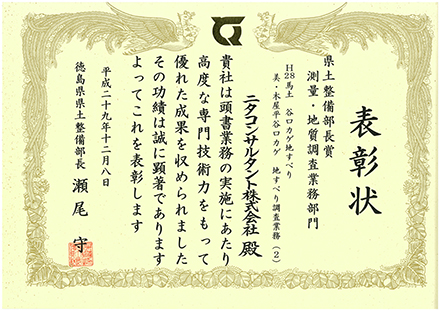 表彰状
県土整備部長賞
測量・地質調査業務部門
H28馬土 谷口カゲ地すべり
美・木屋平谷口カゲ 地すべり調査業務(2)
ニタコンサルタント株式会社 殿
貴社は頭書業務の実施にあたり
高度な専門技術力をもって
優れた成果を収められました
その功績は誠に顕著であります
よってこれを表彰します
平成二十九年十二月八日
徳島県県土整備部長 瀬尾 守